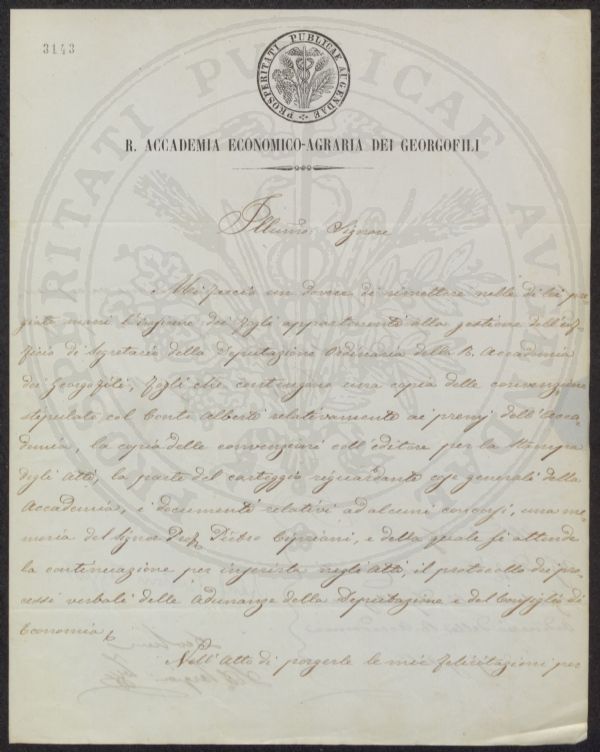 3143
PROSPERITATI PUBLICAE AUGENDAE
R. ACCADEMIA ECONOMICO-AGRARIA DEI GEORGOFILI
Illumo. Signore
Mi faccio un dovere di rimettere nelle di lei pre
giate mani l'inserto dei fogli appartenenti alla gestione dell'uf
ficio di Segretario della Deputazione Ordinaria della R. Accademia
dei Georgofili, fogli che contengono una copia delle convenzioni
stipulate col Conte Alberti relativamente ai premj dell'Acca
demia, la copia delle convenzioni coll'editore per la Stampa
degli Atti, la parte del carteggio riguardante cose generali della
Accademia, i documenti relativi ad alcuni concorsi, una me
moria del Signor Prof. Pietro Cipriani, e della quale si attende
la continuazione per inserirla negli Atti, il protocollo dei pro
cessi verbali delle Adunanze della Deputazione e del Consiglio di
Economia
Nell'Atto di porgerle le mie felicitazioni per